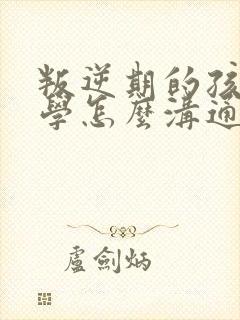 叛逆期的孩
學怎麼溝通
盧劍炳